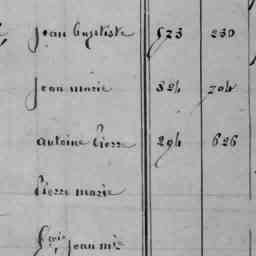 jean baptiste 523 230
jean marie 324 704
antoine Pierre 294 626
Pierre marie
jean mie